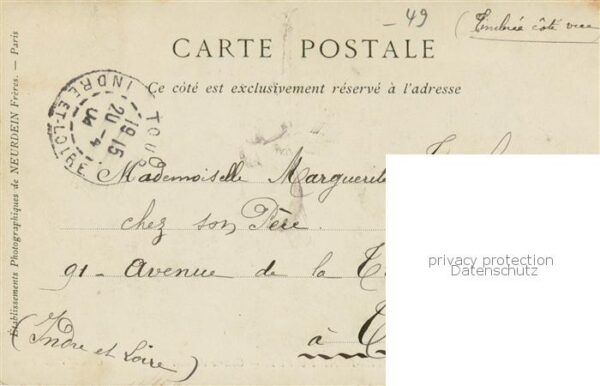 -49
(Timbrée côté vue)
CARTE POSTALE
Ce côté est exclusivement réservé à l'adresse
TOURS
INDRE-ET-LOIRE
19 15
20 - 4
04
Mademoiselle Marguerite
chez son Père.
91 - Avenue de la T
à T
(Indre et Loire)
privacy protection
Datenschutz
Établissements Photographiques de NEURDEIN Frères. — Paris